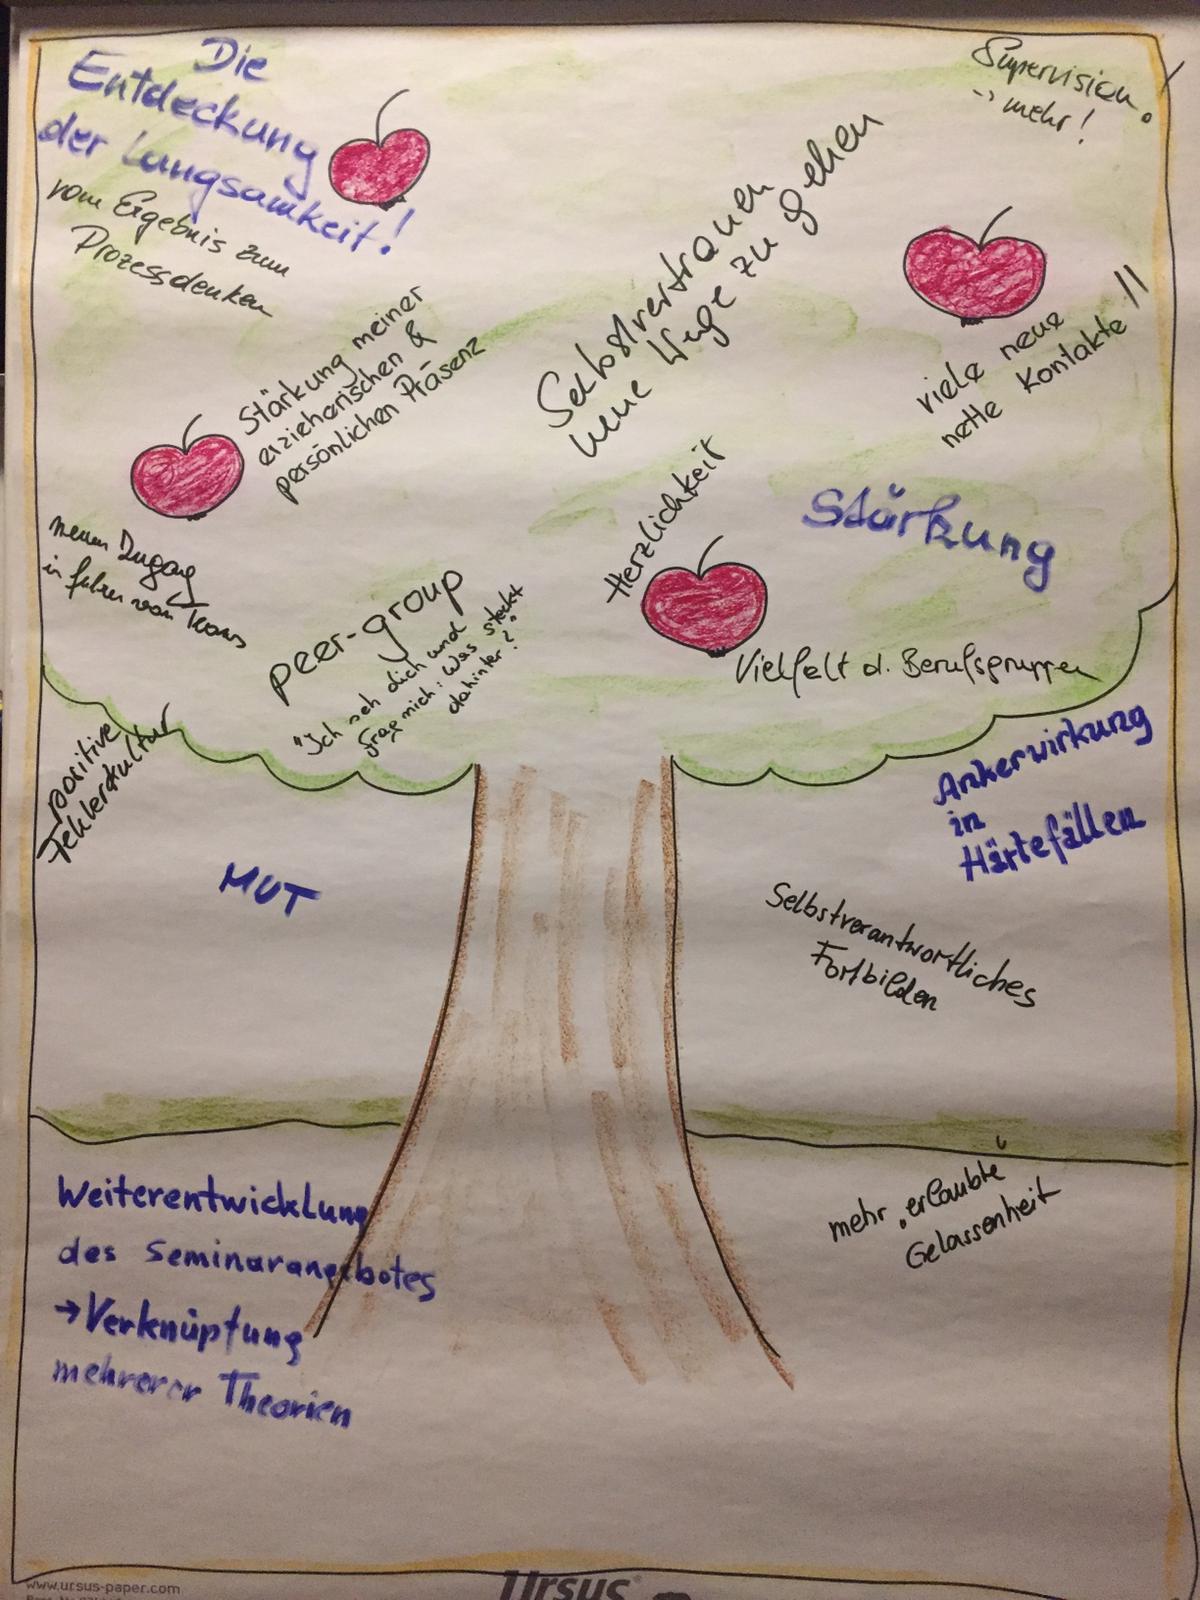 Die
Entdeckung
der Langsamkeit!
vom Ergebnis zum
Prozessdenken
Supervision!
→ mehr!
Selbstvertrauen
neue Wege zu gehen
viele neue
nette Kontakte !!
Stärkung meiner
erzieherischen &
persönlichen Präsenz
neuen Zugang
in führen von
Herzlichkeit
Stärkung
peer-group
"Ich seh dich und
frag mich: Was steckt
dahinter?"
Vielfalt d. Berufsgruppen
positive
Fehlerkultur
MUT
Ankerwirkung
in
Härtefällen
Selbstverantwortliches
Fortbilden
mehr „erlaubte"
Gelassenheit
Weiterentwicklung
des Seminarangebotes
→ Verknüpfung
mehrerer Theorien
www.ursus-paper.com
Ursus®